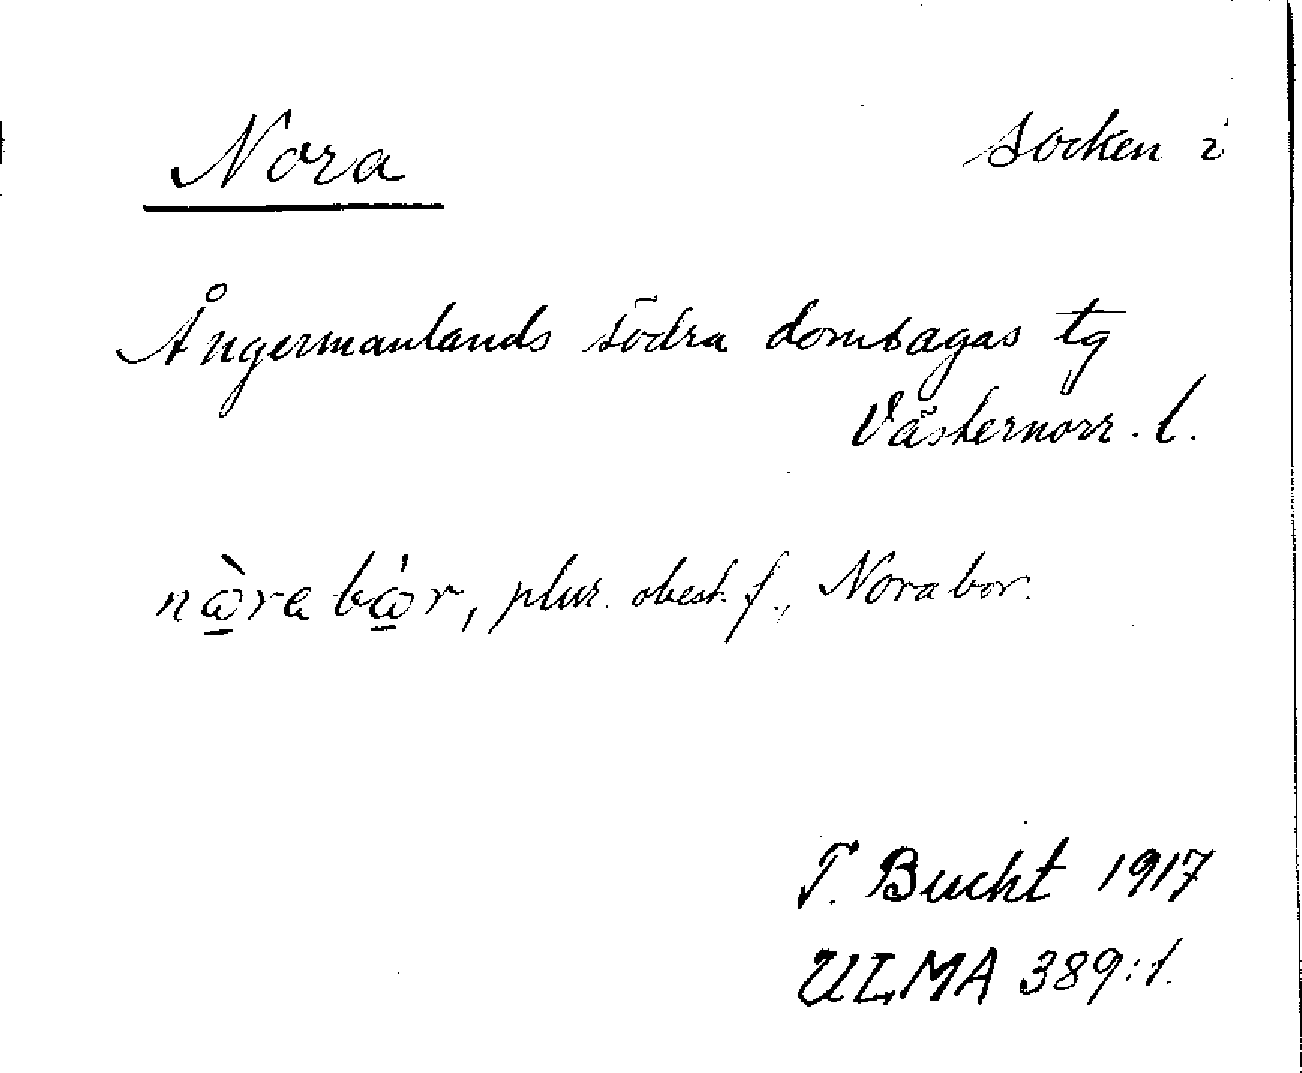 Nora socken i
Ångermanlands södra domsagas tg
Västernorr. l.
nꞷ̠̀ra bꞷ̠́r, plur. obest. f., Norabor.
T. Bucht 1917
ULMA 389:1.